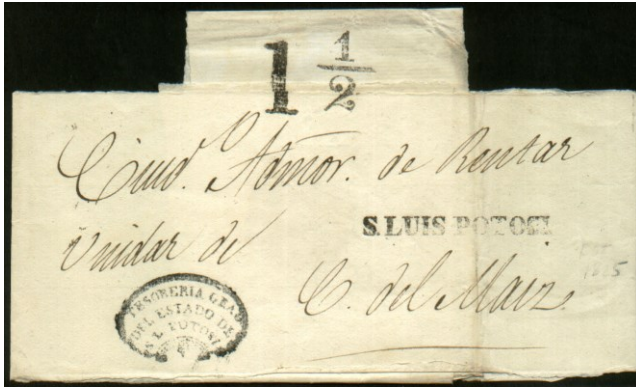 1 1/2
Ciud. Admor. de Rentas
Unidas de
S. LUIS POTOSI.
C. del Maiz.
TESORERIA GRAL
DEL ESTADO DE
S. L. POTOSI